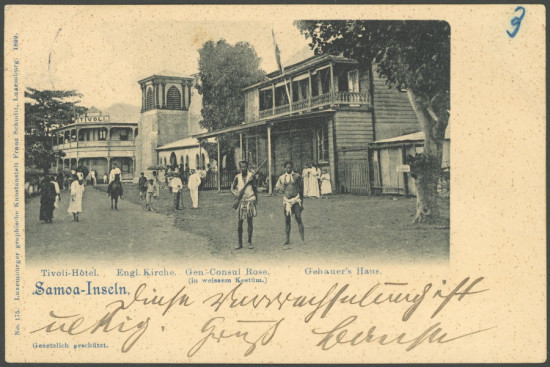 3
TIVOLI
Tivoli-Hôtel. Engl. Kirche. Gen.-Consul Rose. Gebauer's Haus.
(in weissem Kostüm.)
Samoa-Inseln.
Diese Verwechselung ist
ulkig. Gruß
Gesetzlich geschützt.
No. 175. Luxemburger graphische Kunstanstalt Franz Luxemburg: 1899.